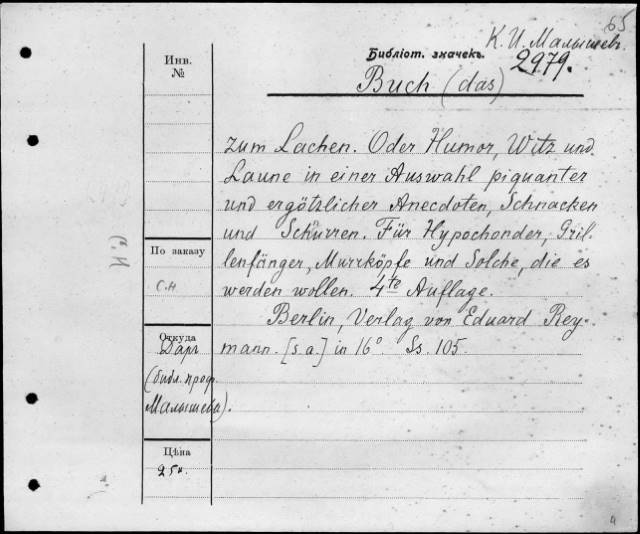 65
К. И. Малышевъ
Библіот. значекъ. 2979.
Buch (das)
zum Lachen. Oder Humor, Witz und
Laune in einer Auswahl piquanter
und ergötzlicher Anecdoten, Schnacken
und Schnurren. Für Hypochonder, Gril-
lenfänger, Murrköpfe und Solche, die es
werden wollen. 4te Auflage.
Berlin, Verlag von Eduard Rey-
mann. [s.a.] in 16°. Ss. 105.
Инв.
№
По заказу
С.Н
Откуда
Даръ
(библ. проф.
Малышева).
Цѣна
25к.